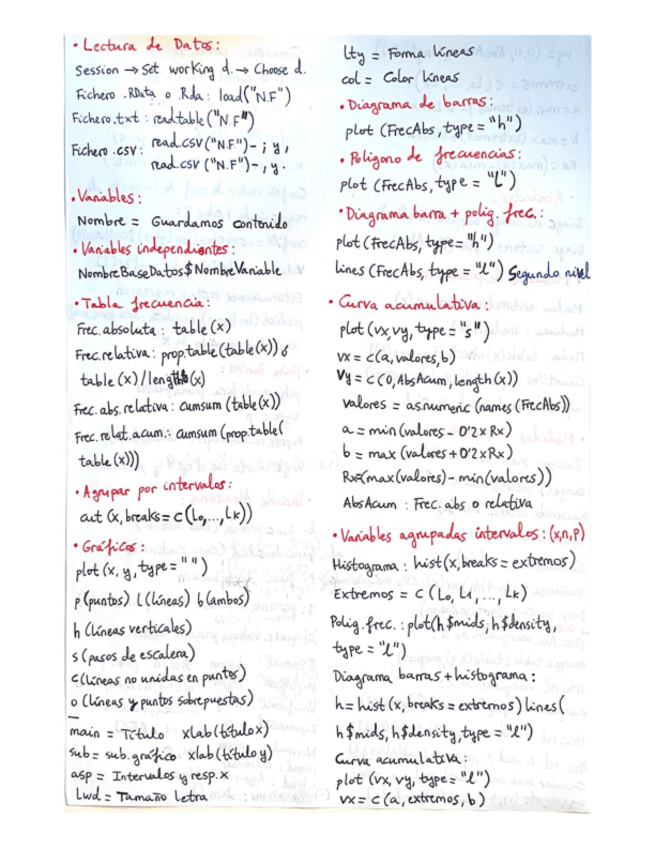 • Lectura de Datos:
Session → Set working d. → Choose d.
Fichero .RData o .Rda: load("N.F")
Fichero.txt: read.table("N.F")
Fichero.csv: read.csv("N.F") - ; y ,
read.csv("N.F") - , y .
• Variables:
Nombre = Guardamos contenido
• Variables independientes:
NombreBaseDatos$NombreVariable
• Tabla frecuencia:
Frec.absoluta: table(x)
Frec.relativa: prop.table(table(x)) ó
table(x)/length(x)
Frec.abs.relativa: cumsum(table(x))
Frec.relat.acum: cumsum(prop.table(
table(x)))
• Agrupar por intervalos:
cut(x,breaks=c(Lo,...,Lk))
• Gráficos:
plot(x,y,type=" ")
p(puntos) L(líneas) b(ambos)
h(líneas verticales)
s(pasos de escalera)
c(líneas no unidas en puntos)
o(líneas y puntos sobrepuestas)
main = Título xlab(título x)
sub = sub.gráfico xlab(título y)
asp = Intervalos y resp.x
Lwd = Tamaño Letra
Lty = Forma líneas
col = Color líneas
• Diagrama de barras:
plot(FrecAbs,type="h")
• Poligono de frecuencias:
plot(FrecAbs,type="l")
• Diagrama barra + polig. frec.:
plot(FrecAbs,type="h")
lines(FrecAbs,type="l") Segundo nivel
• Curva acumulativa:
plot(vx,vy,type="s")
vx = c(a,valores,b)
vy = c(0,AbsAcum,length(x))
valores = as.numeric(names(FrecAbs))
a = min(valores - 0'2xRx)
b = max(valores + 0'2xRx)
Rx=(max(valores) - min(valores))
AbsAcum: Frec.abs o relativa
• Variables agrupadas intervalos: (x,n,P)
Histograma: hist(x,breaks=extremos)
Extremos = c(L0, L1, ..., Lk)
Polig.frec.: plot(h$mids, h$density,
type="l")
Diagrama barras + histograma:
h=hist(x,breaks=extremos) lines(
h$mids,h$density,type="l")
Curva acumulativa:
plot(vx,vy,type="l")
vx = c(a,extremos,b)